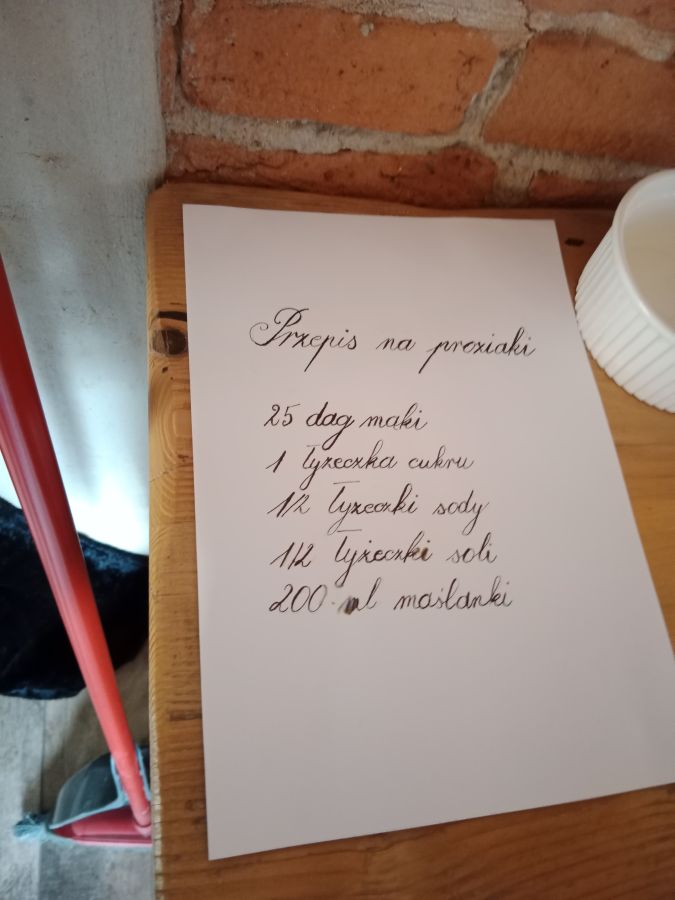 Przepis na proziaki
25 dag mąki
1 łyżeczka cukru
1/2 łyżeczki sody
1/2 łyżeczki soli
200 ml maślanki